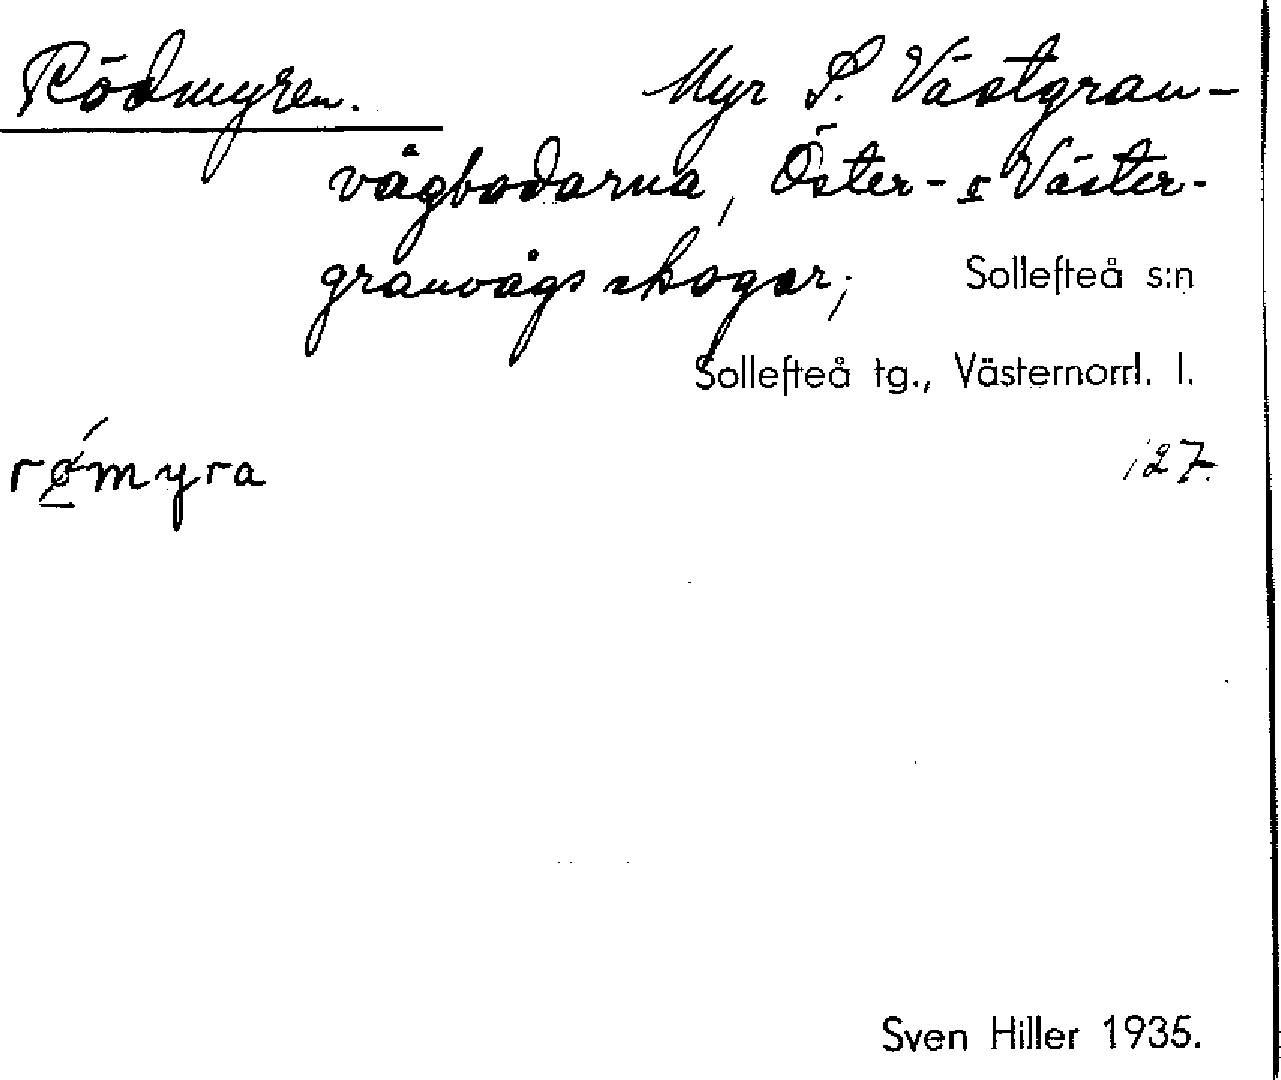 Rödmyren. Myr S. Västgran-
vågbodarna, Öster- o Väster-
granvågs skogar; Sollefteå s:n
Sollefteå tg., Västernorrl. l.
rǿ̱myra 127.
Sven Hiller 1935.